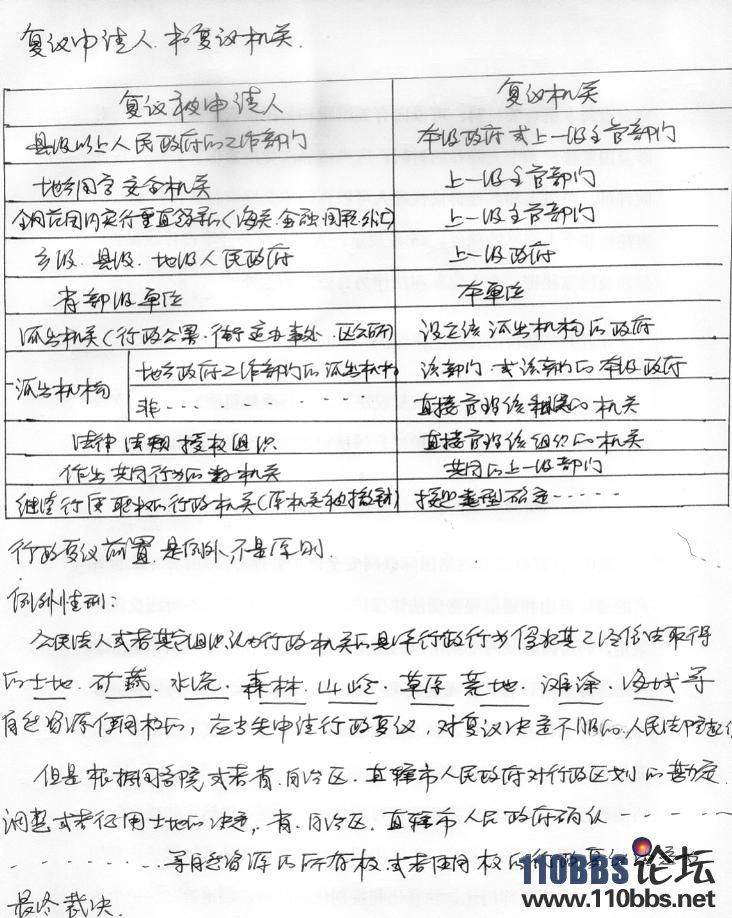 复议申请人和复议机关.
复议被申请人 复议机关
县级以上人民政府的工作部门 本级政府或上一级主管部门
地方国家安全机关 上一级主管部门
全国范围内实行垂直领导的(海关.金融.国税.外汇) 上一级主管部门
乡级.县级.地级人民政府 上一级政府
省部级单位 本单位
派出机关(行政公署.街道办事处.区公所) 设立该派出机构的政府
派出机构 地方政府工作部门的派出机构 该部门或该部门的本级政府
非……… 直接管理该组织的机关
法律法规授权组织 直接管理该组织的机关
作出共同行为的数机关 共同的上一级部门
继续行使职权的行政机关(原机关被撤销) 按照类型确定……
行政复议前置是例外不是原则.
例外性列:
公民法人或者其它组织认为行政机关的具体行政行为侵犯其已经依法取得
的土地.矿藏.水流.森林.山岭.草原.荒地.滩涂.海域等
自然资源使用权的,应当先申请行政复议,对复议决定不服的.人民法院起
但是根据国务院或者省.自治区.直辖市人民政府对行政区划的勘定.
调整或者征用土地的决定,省.自治区.直辖市人民政府确认………
………等自然资源的所有权或者使用权的行政复议
最终裁决.
110BBS论坛
www.110bbs.net